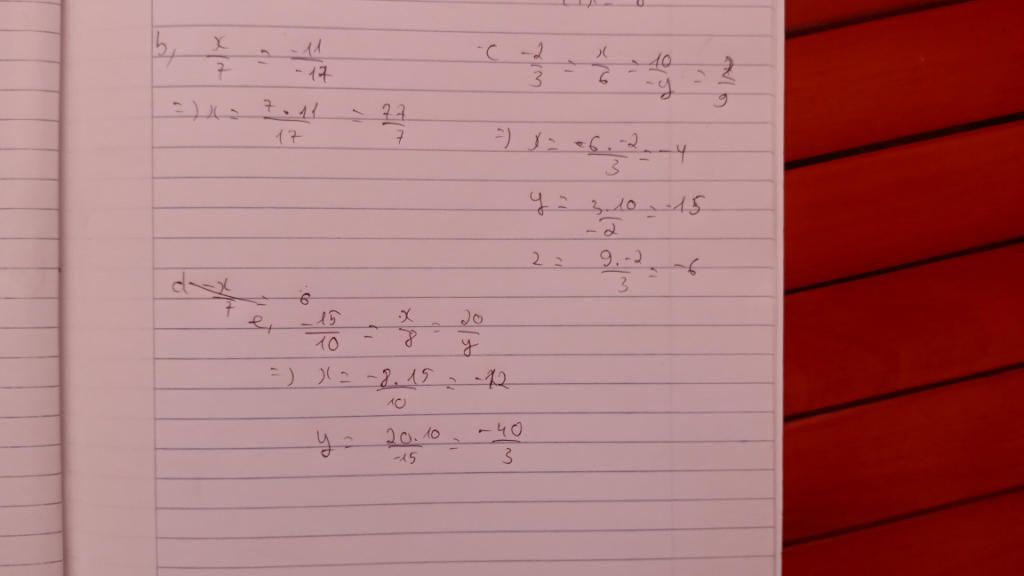 b, x/7 = -11/-17
=) x = 7.11/17 = 77/7
c -2/3 = x/6 = 10/-y = z/9
=) x = -6.-2/3 = -4
y = 3.10/-2 = -15
z = 9.-2/3 = -6
d -x/7 = 6
e, -15/10 = x/8 = 20/y
=) x = -8.15/10 = -12
y = 20.10/-15 = -40/3